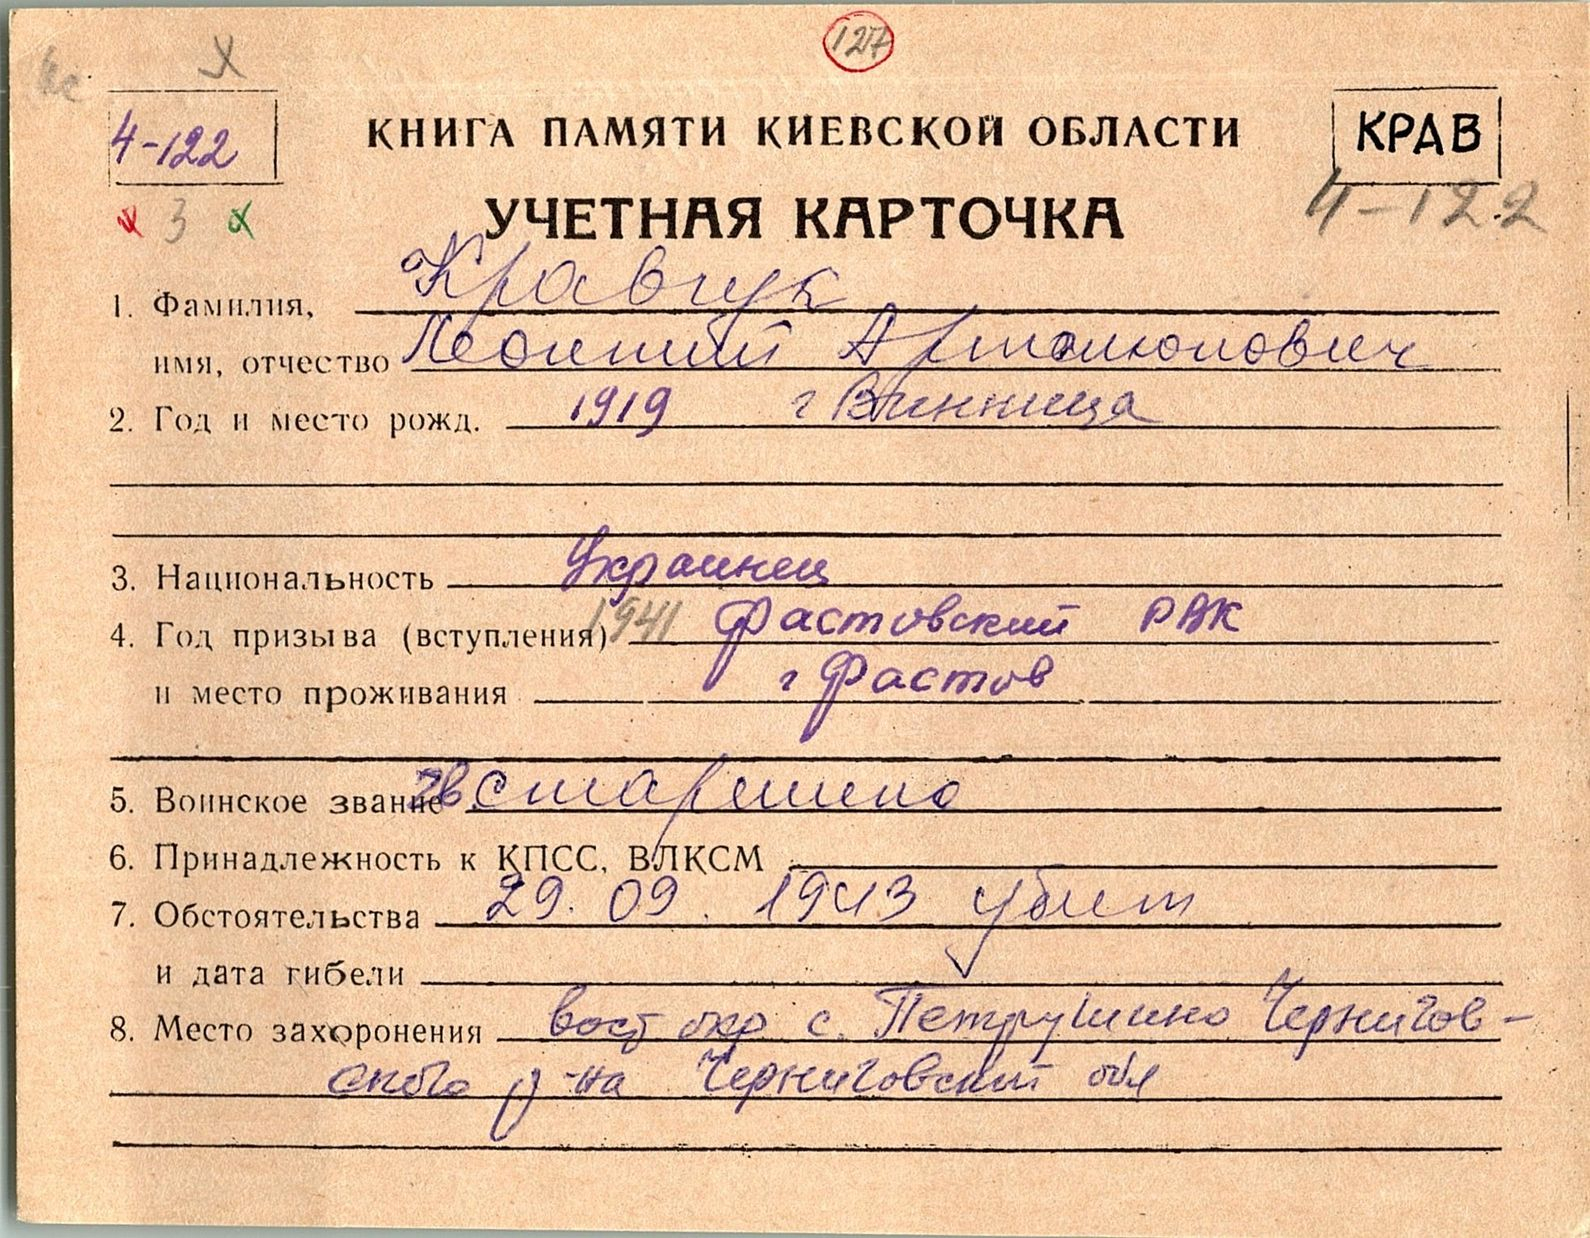 127
х
4-122
КНИГА ПАМЯТИ КИЕВСКОЙ ОБЛАСТИ
КРАВ
х 3 х
УЧЕТНАЯ КАРТОЧКА
4-122
1. Фамилия, Кравчук
имя, отчество Леонтий Артамонович
2. Год и место рожд. 1919 г Винница
3. Национальность Украинец
4. Год призыва (вступления) 1941 Фастовский РВК
и место проживания г Фастов
5. Воинское звание гв старшина
6. Принадлежность к КПСС, ВЛКСМ
7. Обстоятельства 29.09.1943 убит
и дата гибели
8. Место захоронения вост окр с. Петрушино Чернигов-
ского р-на Черниговский обл